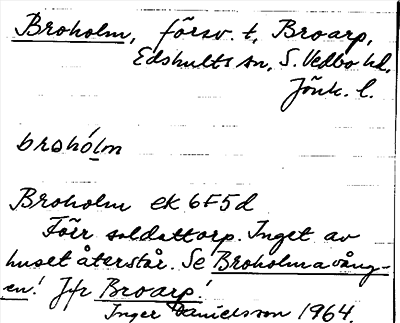 Broholm, försv. t. Broarp,
Edshults sn, S. Vedbo hd,
Jönk. l.
brohólm
Broholm ek 6F5d
Förr soldattorp. Inget av
huset återstår. Se Broholmavång-
en! Jfr Broarp!
Inger Danielsson 1964.